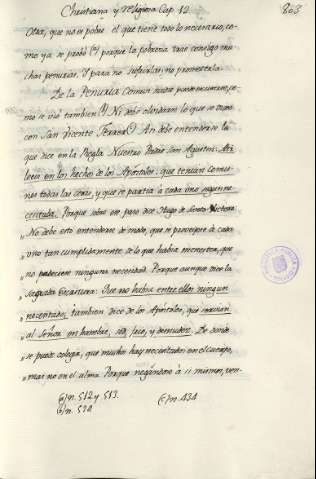 Christiana y Religiosa Cap. 12. 803
Otar, que no es pobre el que tiene todo lo necesario, co-
mo ya se probó (*) porque la pobreza trae consigo mu-
chas penurias. Y para no sufrirlas, no prometerla.
De la Penuria comun nada
mo se vio tambien (*) Ni debe olvidarse lo que se
con San Vicente Ferrer (*) Asi debe entenderse lo
que dice en la Regla Nuestro Padre San Agustin: Asi
leeis en los hechos de los Apostoles, que tenian comu-
nes todas las cosas, y que se partia à cada uno segun ne-
cesitaba. Porque sobre ese paso dice Hugo de Santo Victore:
„ No debe esto entenderse de modo, que se proveyese à cada
„ uno tan cumplidamente de lo que habia menester, que
„ no padeciese ninguna necesidad. Porque aunque dice la
„ Sagrada Escritura: Que no habia entre ellos ningun
„ necesitado, tambien dice de los Apostoles, que servian
„ al Señor en hambre, sed, frio, y desnudez. De donde
„ se puede colegir, que muchos hay necesitados en el cuerpo,
„ mas no en el alma. Porque negandose à si mismos, ven-
(*) n. 512 y 513. (*) n. 434
(*) n. 530